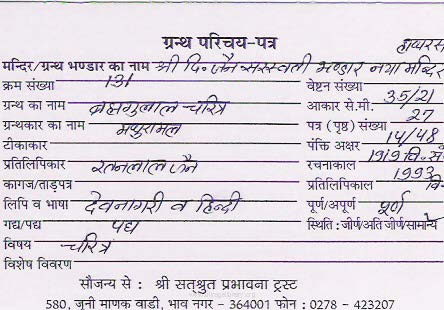 हाथरस
ग्रन्थ परिचय-पत्र
मन्दिर/ग्रन्थ भण्डार का नाम श्री दि॰ जैन सरस्वती भण्डार नया मन्दिर
क्रम संख्या 131 वेष्टन संख्या
ग्रन्थ का नाम ब्रह्मगुलाल चरित्र आकार से.मी. 35/21
ग्रन्थकार का नाम मथुरामल पत्र (पृष्ठ) संख्या 27
टीकाकार पंक्ति अक्षर 14/48
प्रतिलिपिकार रतनलाल जैन रचनाकाल 1919 वि॰ सं
कागज/ताड़पत्र प्रतिलिपिकाल 1993 वि
लिपि व भाषा देवनागरी व हिन्दी पूर्ण/अपूर्ण पूर्ण
गद्य/पद्य पद्य स्थिति : जीर्ण/अति जीर्ण/सामान्य
विषय चरित्र
विशेष विवरण
सौजन्य से : श्री सत्श्रुत प्रभावना ट्रस्ट
580, जूनी माणक वाडी, भाव नगर - 364001 फोन : 0278 - 423207